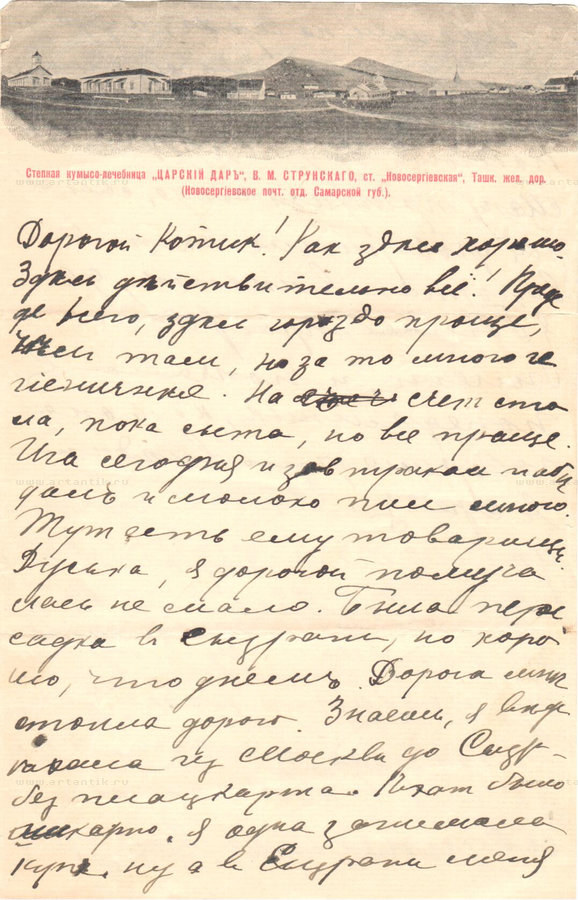 Степная кумысо-лечебница „ЦАРСКІЙ ДАРЪ“, В. М. СТРУНСКАГО, ст. „Новосергіевская“, Ташк. жел. дор.
(Новосергіевское почт. отд. Самарской губ.).
Дорогой Котик! Как здесь хорошо.
Здесь дѣйствительно всё! Преж
де всего, здесь гораздо проще,
чѣм там, но за то много ге
гіеничнѣе. На счет сто
ла, пока сыта, но всё проще.
сегодня и завтракал и обѣ
дал и молоко пил много.
Тут есть ему товарищ.
Дуська, я дорогой помуча
лась не мало. Была пере
садка в Сызрани, но хоро
шо, что днемъ. Дорога мнѣ
стоила дорого. Знаешь, я
из Москвы до Сызр.
без плацкарта. было
шикарно. я одна занимала
купе, ну а в Сызрани меня
www.artantik.ru